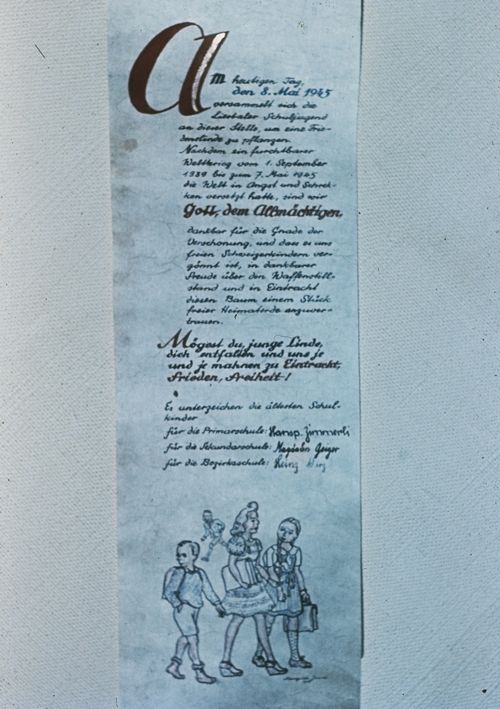 Am heutigen Tag,
den 8. Mai 1945
versammelt sich die
Liestaler Schuljugend
an dieser Stelle, um eine Frie-
denslinde zu pflanzen.
Nachdem ein furchtbarer
Weltkrieg vom 1. September
1939 bis zum 7. Mai 1945
die Welt in Angst und Schrek-
ken versetzt hatte, sind wir
Gott, dem Allmächtigen,
dankbar für die Gnade der
Verschonung, und dass es uns
freien Schweizerkindern ver-
gönnt ist, in dankbarer
Freude über den Waffenstill-
stand und in Eintracht
diesen Baum einem Stück
freier Heimaterde anzuver-
trauen.
Mögest du, junge Linde,
dich entfalten und uns je
und je mahnen zu Eintracht,
Frieden, Freiheit!
Es unterzeichnen die ältesten Schul-
kinder
für die Primarschule: Hansp. Zimmerli
für die Sekundarschule: Geiger
für die Bezirksschule: Heinz